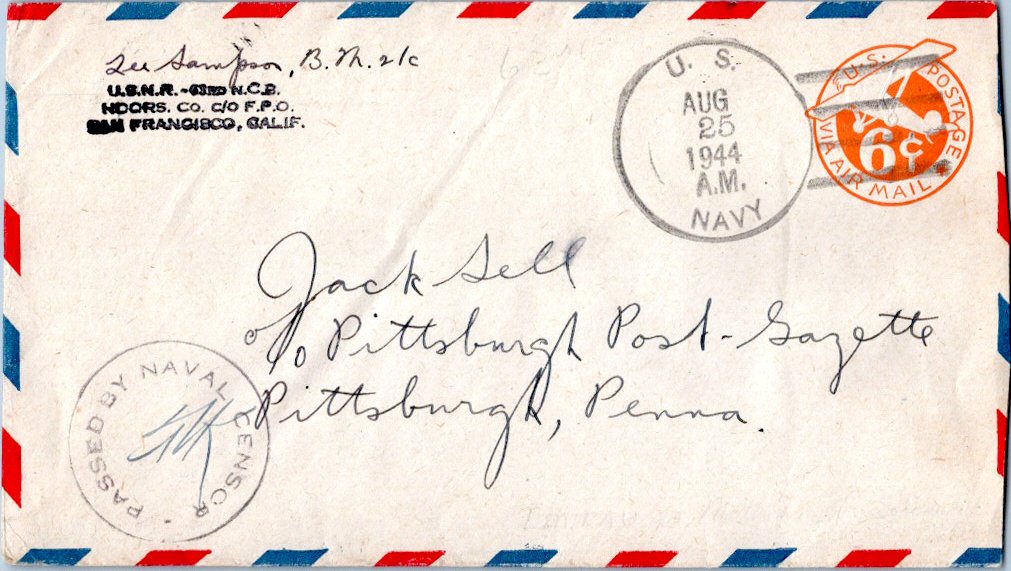 Lee Sampson, B.M. 2/c
U.S.N.R. - 63RD N.C.B.
HDQRS. CO. C/O F.P.O.
SAN FRANCISCO, CALIF.
U. S.
AUG
25
1944
A.M.
NAVY
U.S. POSTAGE
6¢
VIA AIR MAIL
Jack Sell
c/o Pittsburgh Post-Gazette
Pittsburgh, Penna.
PASSED BY NAVAL CENSOR